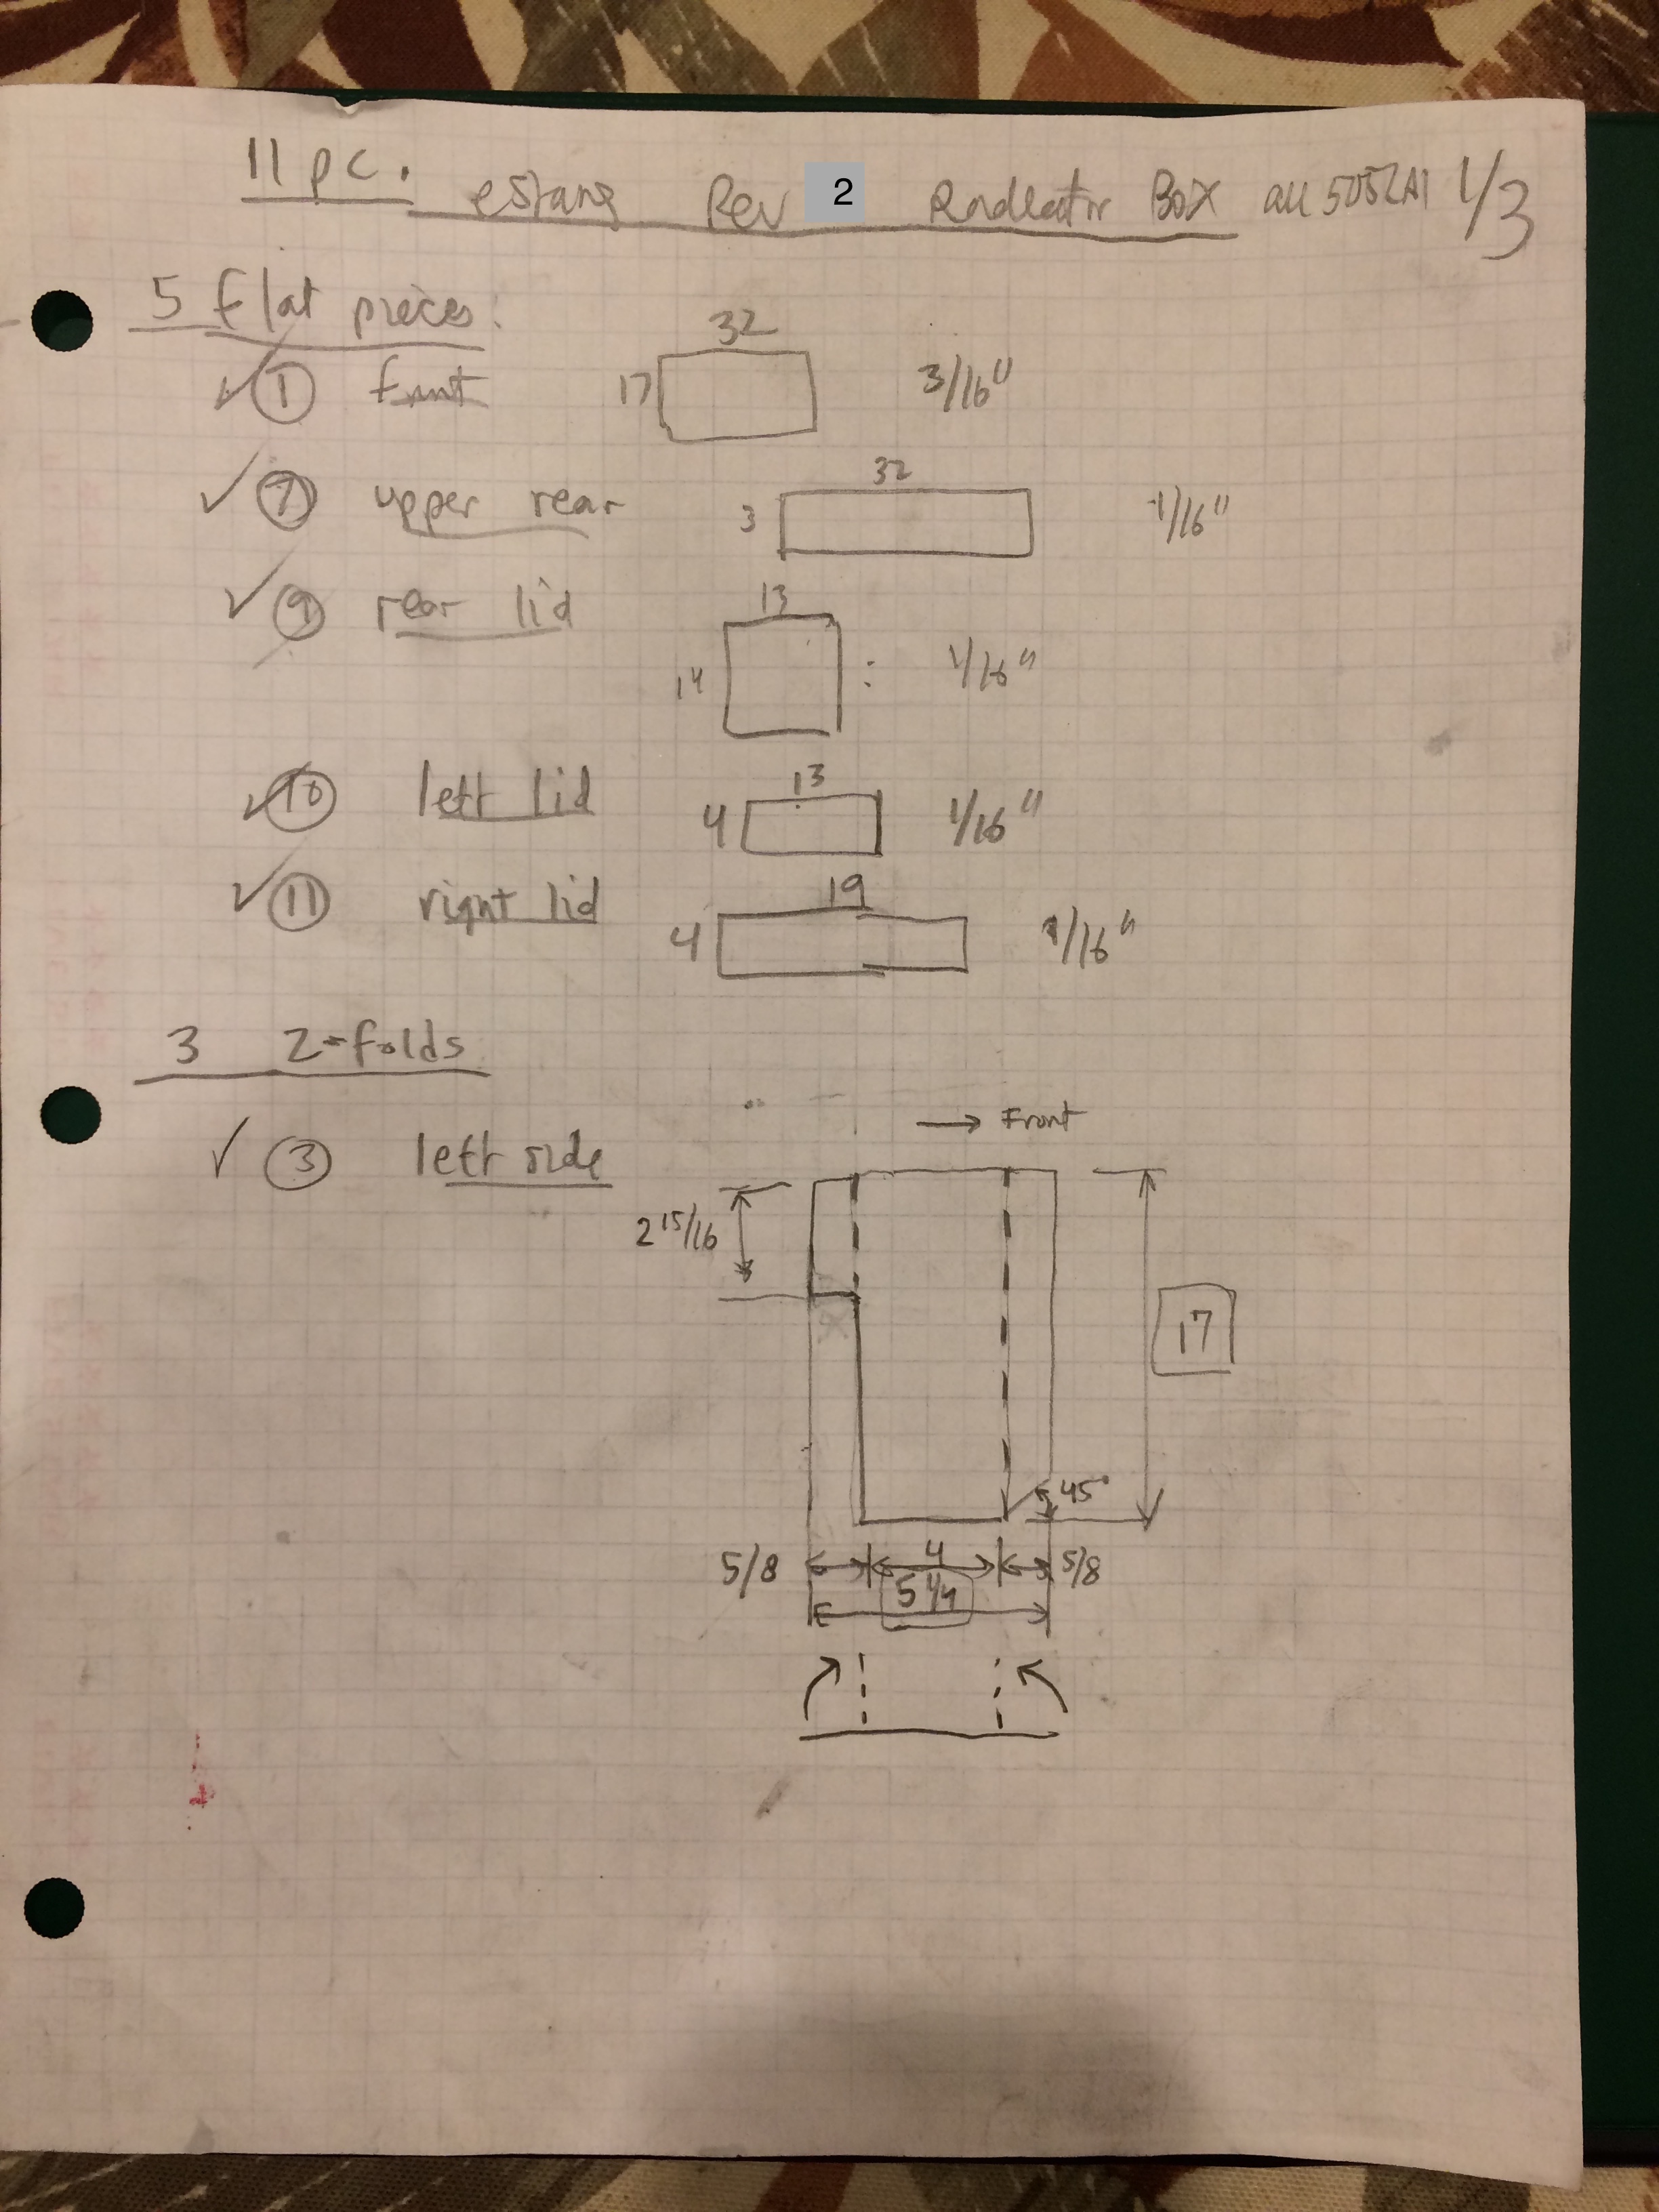 11 pc. estang Rev 2 Radiator Box all 5052Al 1/3
5 flat pieces:
1 front 17 32 3/16"
7 upper rear 3 32 1/16"
9 rear lid 14 13 : 1/16"
10 left lid 4 13 1/16"
11 right lid 4 19 1/16"
3 2-folds
→ Front
3 left side
2 15/16
17
45°
5/8 4 5/8
5 1/4